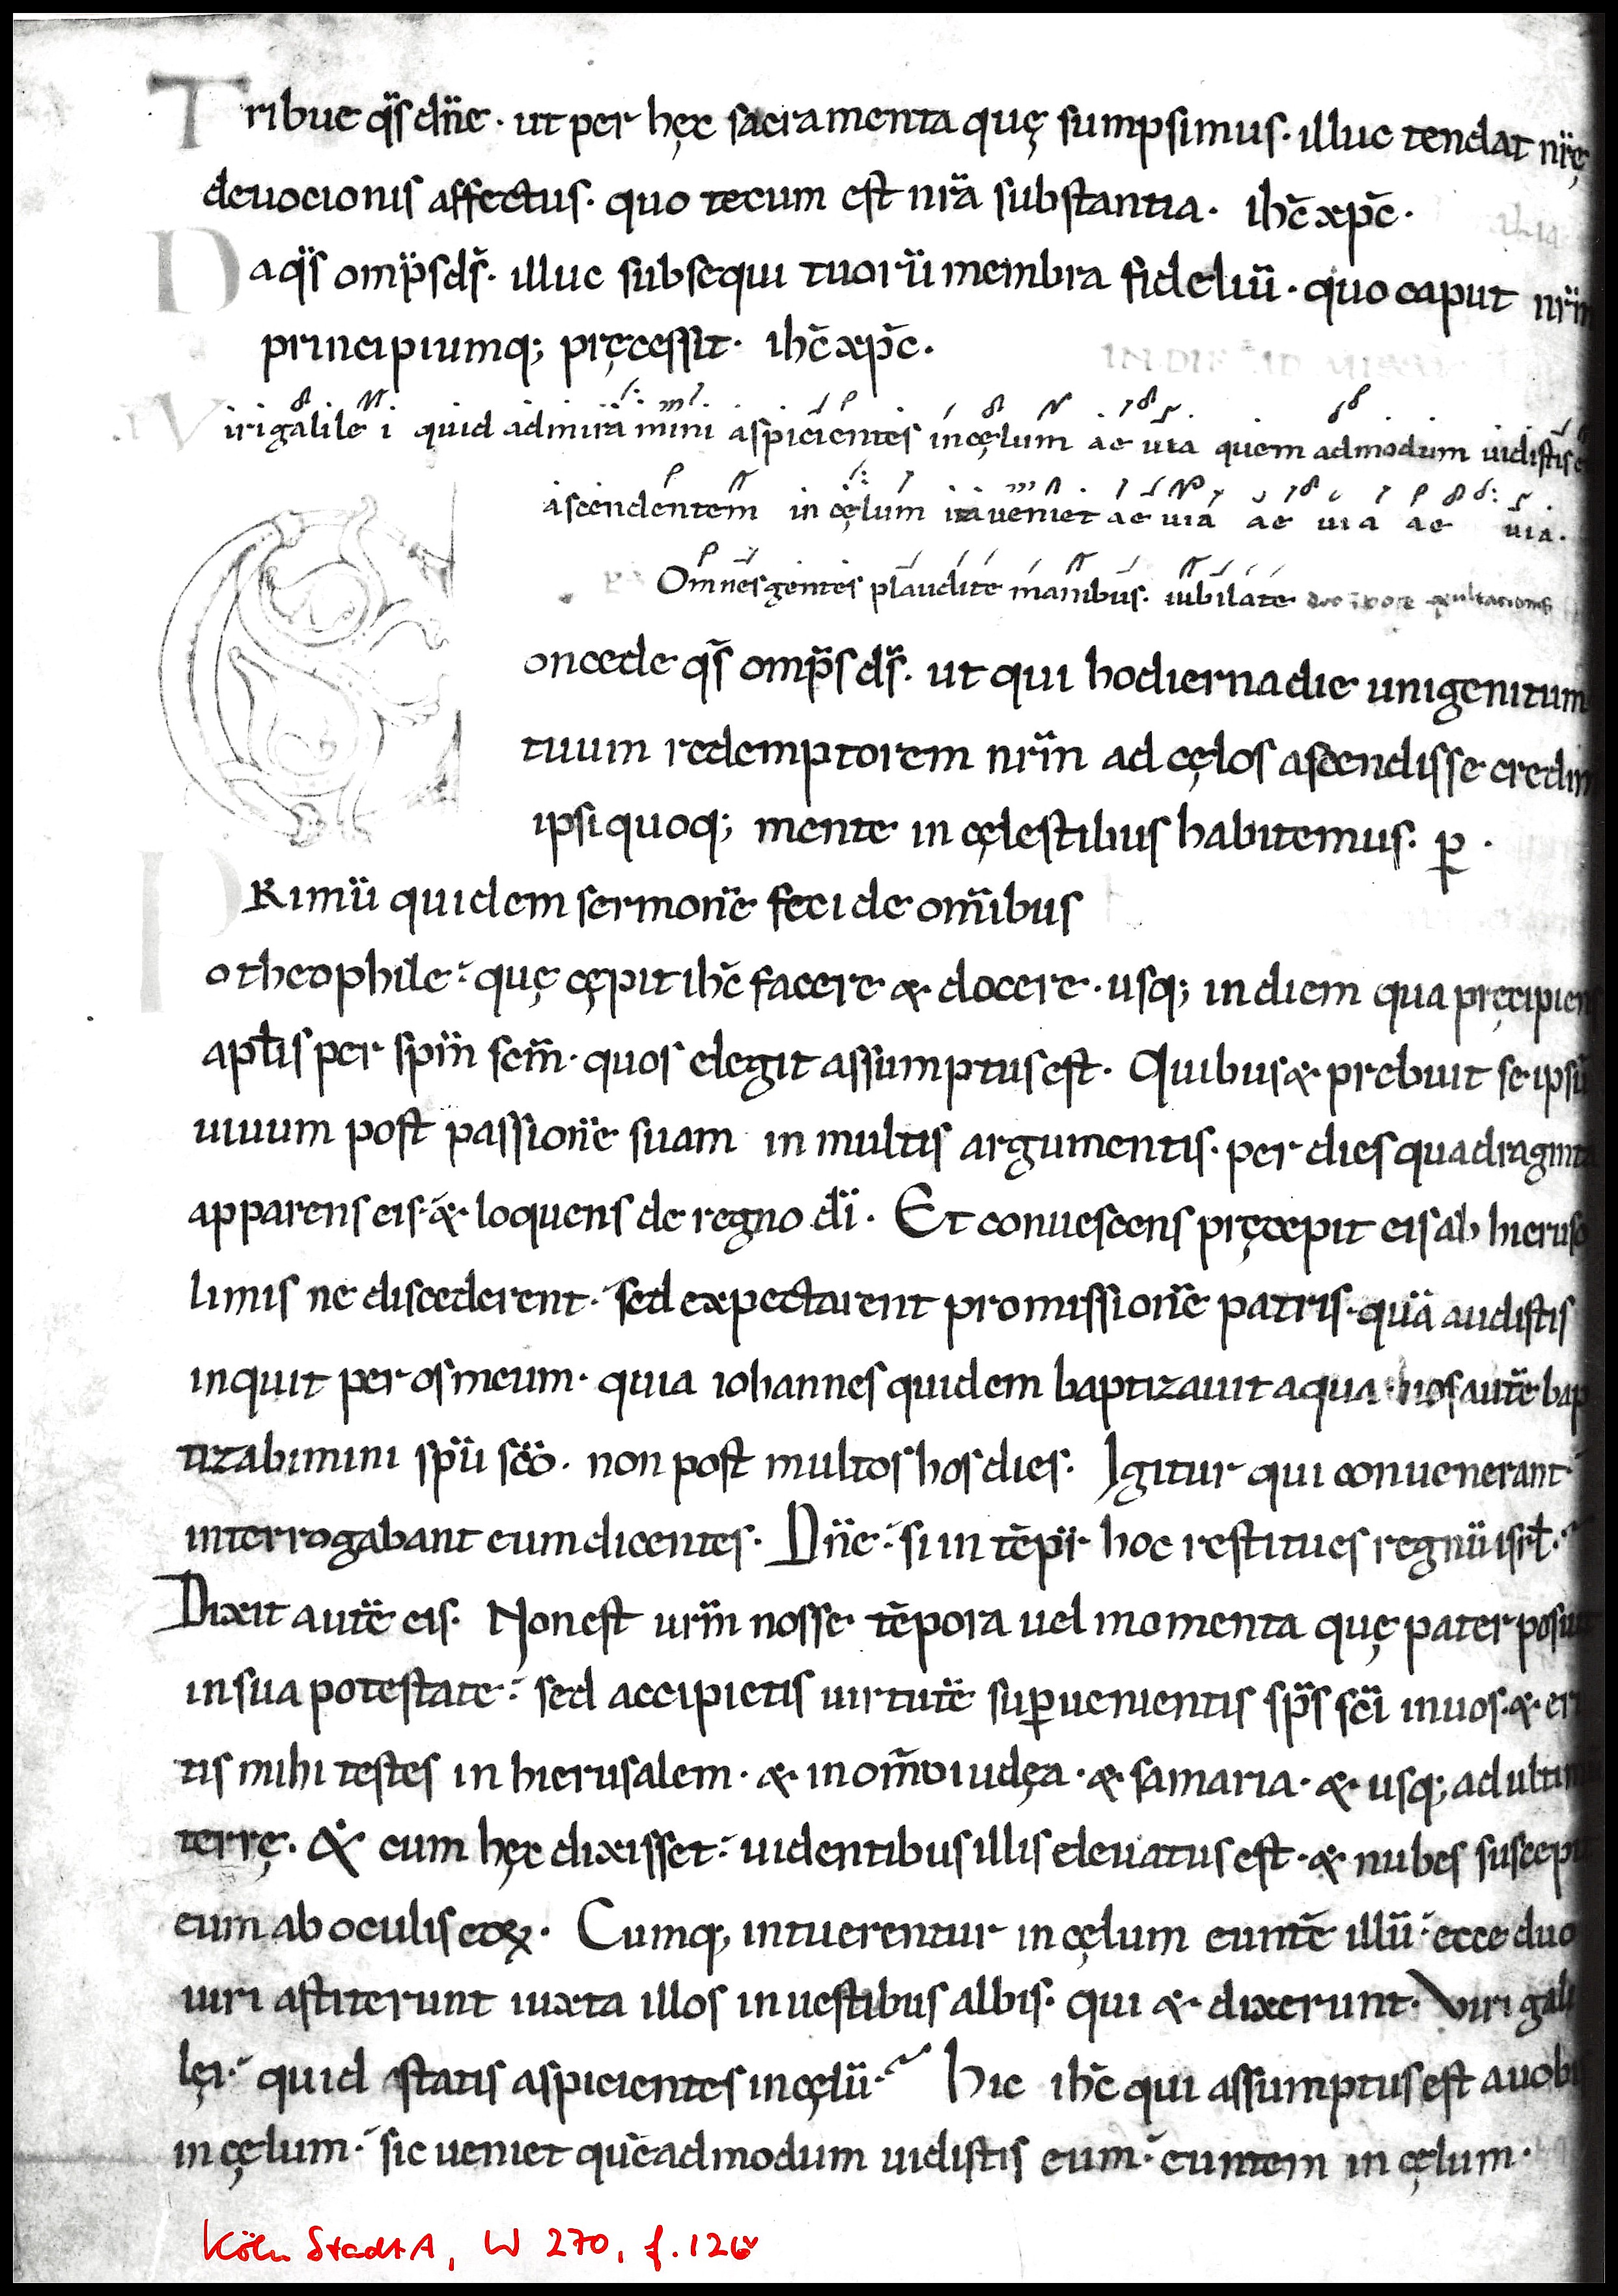 Tribue q̄s dn̄e · ut per hęc sacramenta quę sumpsimus · illuc tendat nr̄ę
deuocionis affectus · quo tecum est nr̄a substantia · ihc̄ xp̄c ·
Da q̄s omp̄s ds̄ · illuc subsequi tuorū membra fideliū · quo caput nr̄m
principiumq; pręcessit · ihc̄ xp̄c ·
Viri galile i quid admira mini aspicientes in cęlum ae uia quem admodum uidistis
ascendentem in cęlum ita ueniet ae uia ae uia ae uia.
Omnes gentes plaudite manibus · iubilate deo
Concede q̄s omp̄s ds̄ · ut qui hodierna die unigenitum
tuum redemptorem nr̄m ad cęlos ascendisse credim
ipsi quoq; mente in cęlestibus habitemus · p̱ ·
PRimū quidem sermonē feci de om̄ibus
o theophile · quę cępit ihc̄ facere & docere · usq; in diem qua pręcipiens
aptłis per spm̄ scm̄ · quos elegit assumptus est · Quibus & prebuit se ipsū
uiuum post passionē suam in multis argumentis · per dies quadraginta
apparens eis · & loquens de regno dī · Et conuescens pręcepit eis ab hieruso
limis ne discederent · sed expectarent promissionē patris · quā audistis
inquit per os meum · quia iohannes quidem baptizauit aqua · uos autē bap
tizabimini spū scō · non post multos hos dies · Igitur qui conuenerant
interrogabant eum dicentes · Dn̄e · si in tēpr̄ hoc restitues regnū isrł ·
Dixit autē eis · Non est ur̄m nosse tēpora uel momenta quę pater posuit
in sua potestate · sed accipietis uirtutē sup̱uenientis sp̄s scī in uos · & eri
tis mihi testes in hierusalem · & in om̄i iudęa · & samaria · & usq; ad ultimū
terrę · & cum hęc dixisset · uidentibus illis eleuatus est · & nubes suscepit
eum ab oculis eoꝝ · Cumq; intuerentur in cęlum euntē illū · ecce duo
uiri astiterunt iuxta illos in uestibus albis · qui & dixerunt · Viri gali
lęi · quid statis aspicientes in cęlū · Hic ihc̄ qui assumptus est a uobis
in cęlum · sic ueniet quēadmodum uidistis eum · euntem in cęlum ·
Köln StadtA, W 270, f. 126v